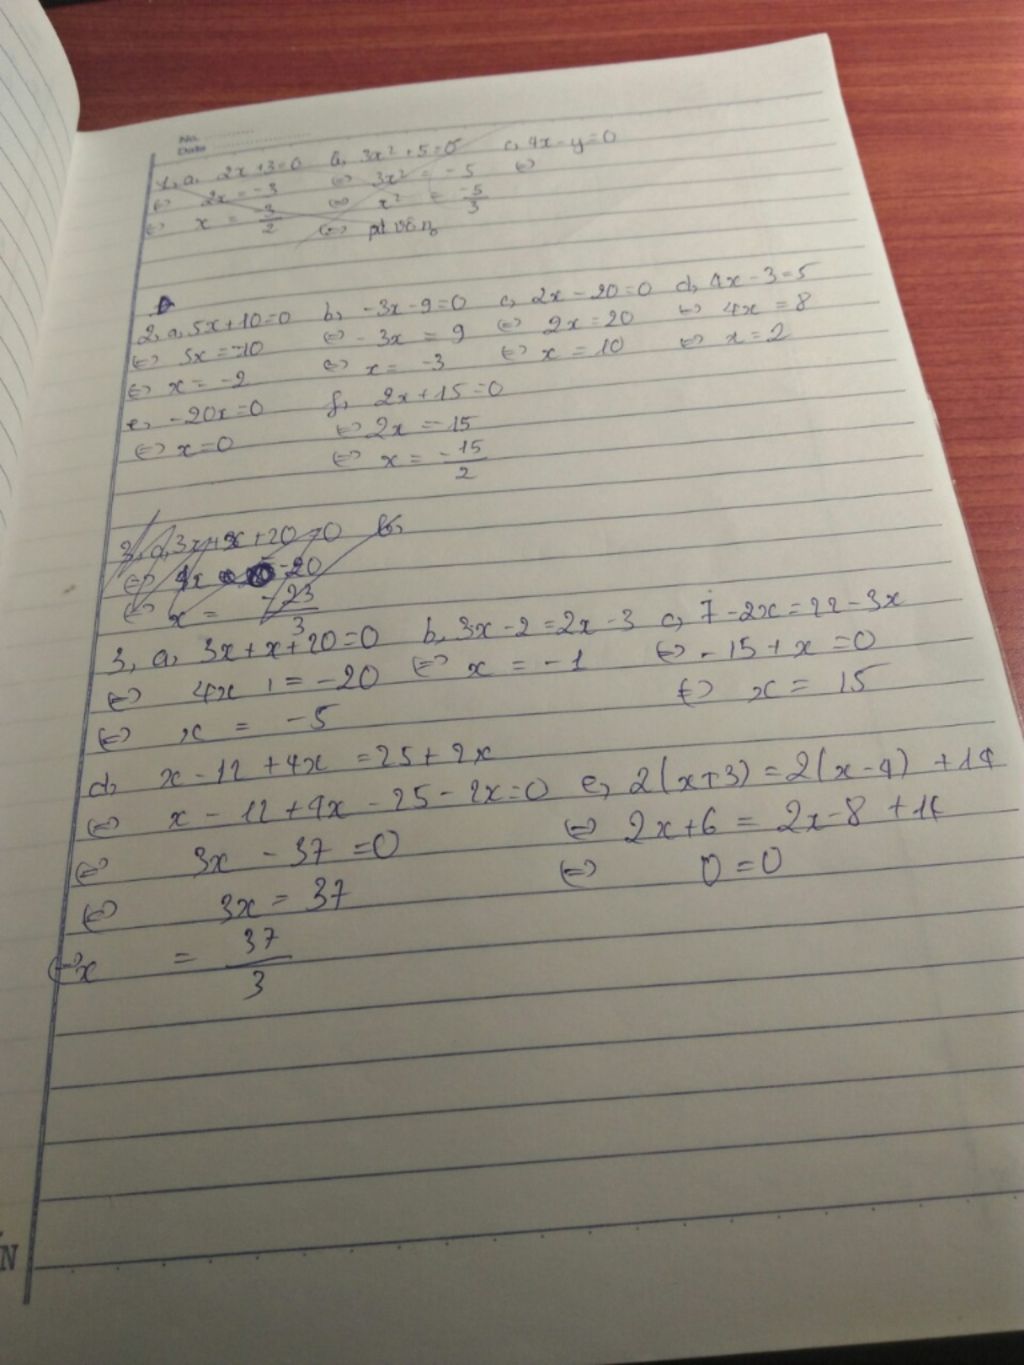 No.
Date
1, a, 2x+3=0 b, 3x² + 5 = 0 c, 4x - y = 0
⇔ 2x = -3 ⇔ 3x² = -5 ⇔
⇔ x = -3/2 ⇔ x² = -5/3
⇔ pt vô n₀
2, a, 5x+10=0 b, -3x-9=0 c, 2x-20=0 d, 4x-3=5
⇔ 5x = -10 ⇔ -3x = 9 ⇔ 2x = 20 ⇔ 4x = 8
⇔ x = -2 ⇔ x = -3 ⇔ x = 10 ⇔ x = 2
e, -20x=0 f, 2x+15=0
⇔ x=0 ⇔ 2x = -15
⇔ x = -15/2
3, a, 3x+x+20=0 b,
⇔ 4x -20
⇔ x = -23/3
3, a, 3x+x+20=0 b, 3x-2=2x-3 c, 7-2x=22-3x
⇔ 4x = -20 ⇔ x = -1 ⇔ -15+x=0
⇔ x = -5 ⇔ x = 15
d, x-12+4x = 25+2x
⇔ x-12+4x-25-2x=0 e, 2(x+3)=2(x-4)+14
⇔ 3x-37=0 ⇔ 2x+6 = 2x-8+14
⇔ 3x = 37 ⇔ 0=0
⇔ x = 37/3
N